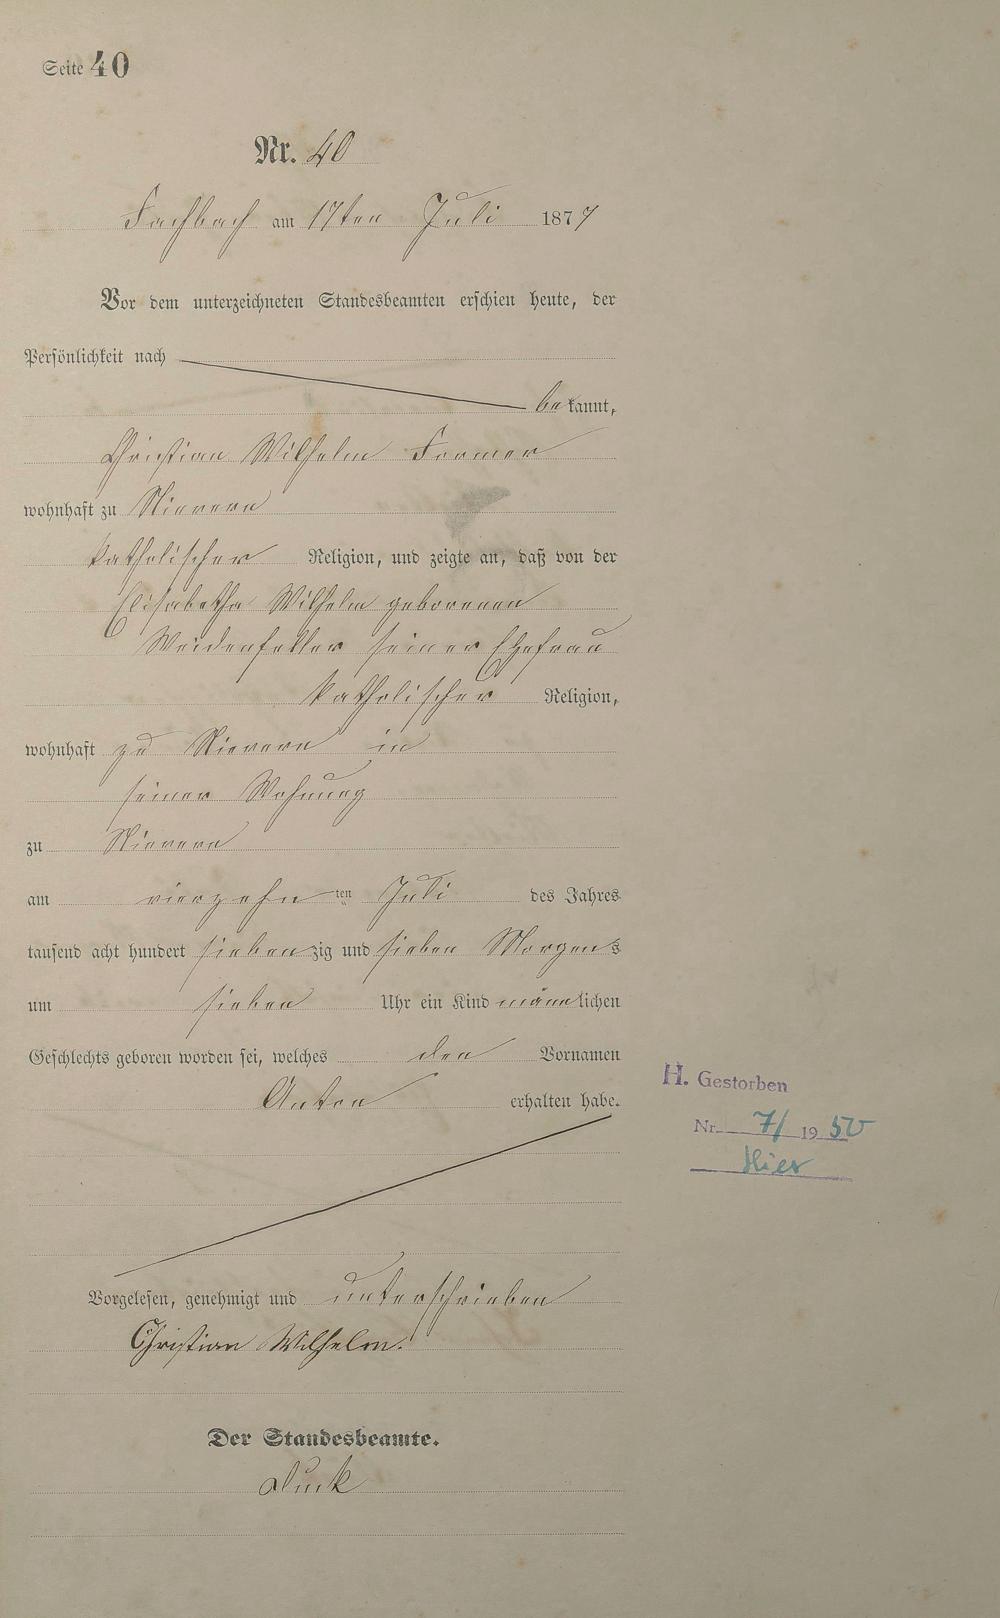 Seite 40
Nr. 40
Fachbach am 17ten Juli 1877
Vor dem unterzeichneten Standesbeamten erschien heute, der
Persönlichkeit nach
bekannt,
Christian Wilhelm Former
wohnhaft zu Nievern
katholischer Religion, und zeigte an, daß von der
Elisabetha Wilhelm geborenen
Weidenfeller seiner Ehefrau
katholischer Religion,
wohnhaft zu Nievern in
seiner Wohnung
zu Nievern
am vierzehn ten Juli des Jahres
tausend acht hundert siebenzig und sieben Morgens
um sieben Uhr ein Kind männlichen
Geschlechts geboren worden sei, welches den Vornamen
Anton erhalten habe.
H. Gestorben
Nr. 7/1950
Hier
Vorgelesen, genehmigt und unterschrieben
Christian Wilhelm.
Der Standesbeamte.